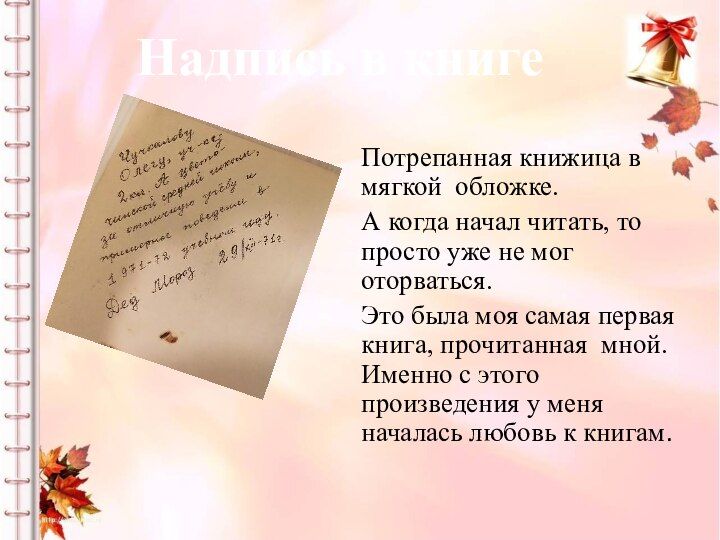 Надпись в книге
Олегу, уч-ку
2 кл. А Цвето
чинской средней школы,
за отличную учёбу и
примерное поведение в
1971-72 учебном году.
Дед Мороз 29/XII-71г.
Потрепанная книжица в
мягкой обложке.
А когда начал читать, то
просто уже не мог
оторваться.
Это была моя самая первая
книга, прочитанная мной.
Именно с этого
произведения у меня
началась любовь к книгам.